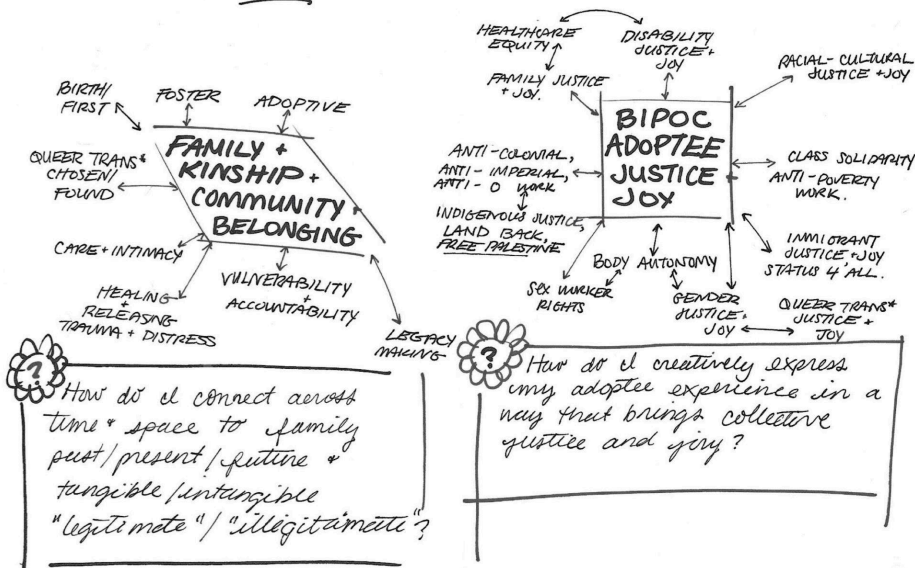 BIRTH/
FIRST
FOSTER
ADOPTIVE
QUEER TRANS*
CHOSEN/
FOUND
FAMILY +
KINSHIP +
COMMUNITY +
BELONGING
CARE + INTIMACY
HEALING
+
RELEASING
TRAUMA + DISTRESS
VULNERABILITY
+
ACCOUNTABILITY
LEGACY
MAKING
?
How do I connect across
time + space to family
past/present/future +
tangible/intangible
"legitimate"/"illegitamate"?
HEALTHCARE
EQUITY
DISABILITY
JUSTICE +
JOY
FAMILY JUSTICE
+ JOY.
RACIAL-CULTURAL
JUSTICE + JOY
BIPOC
ADOPTEE
JUSTICE +
JOY
ANTI-COLONIAL,
ANTI-IMPERIAL,
ANTI-O WORK
INDIGENOUS JUSTICE,
LAND BACK,
FREE PALESTINE
CLASS SOLIDARITY
ANTI-POVERTY
WORK.
IMMIGRANT
JUSTICE + JOY
STATUS 4 ALL.
SEX WORKER
RIGHTS
BODY AUTONOMY
GENDER
JUSTICE +
JOY
QUEER TRANS*
JUSTICE +
JOY
?
How do I creatively express
my adoptee experience in a
way that brings collective
justice and joy?